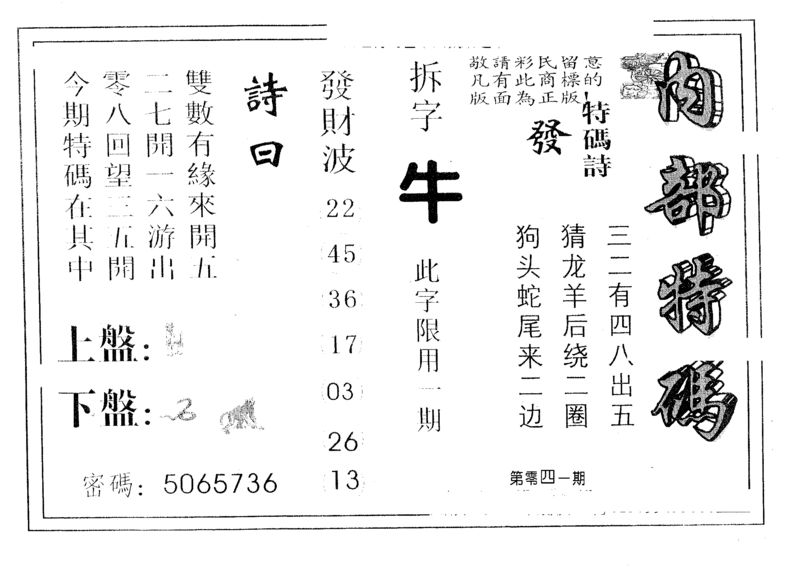 内部特碼
意的
留標版
民商正
彩此為
請有面
敬凡版
特碼詩
發
三二有四八出五
猜龙羊后绕二圈
狗头蛇尾来二边
第零四一期
拆字
牛
此字限用一期
發財波
22
45
36
17
03
26
13
詩曰
雙數有緣來開五
二七開一六游出
零八回望三五開
今期特碼在其中
上盤:
下盤:
密碼: 5065736